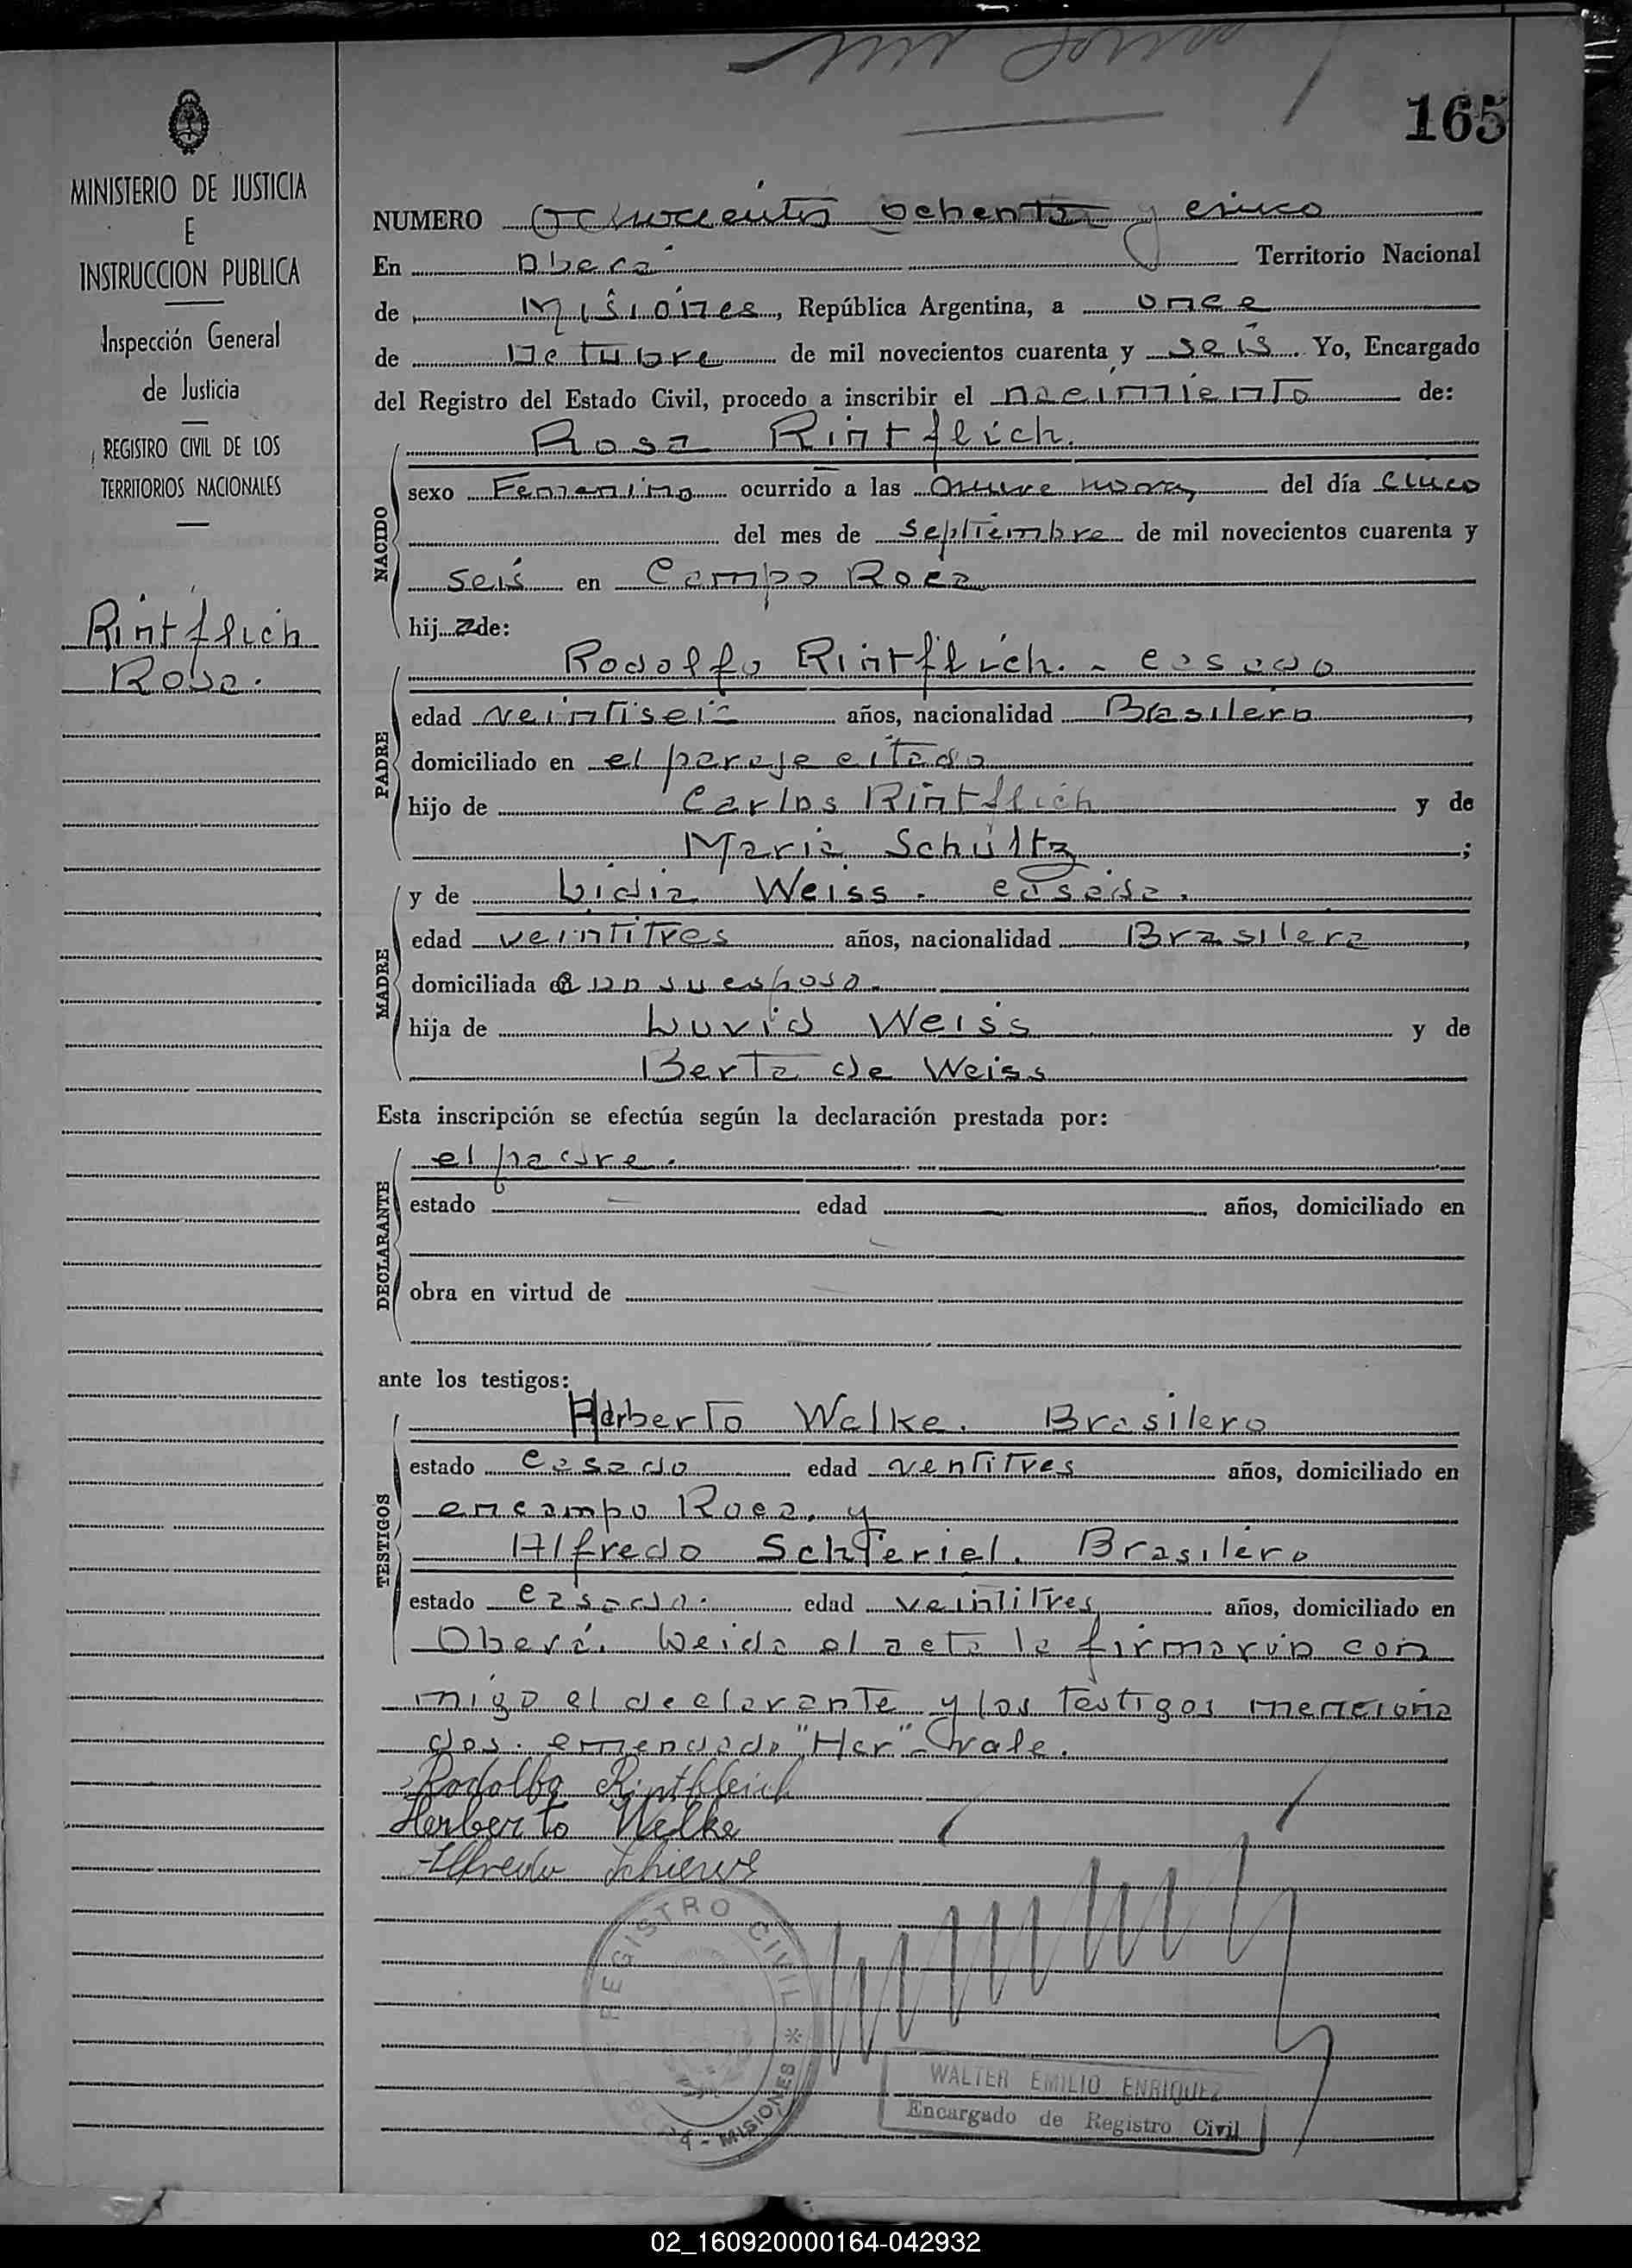 165
MINISTERIO DE JUSTICIA
E
INSTRUCCION PUBLICA
Inspección General
de Justicia
REGISTRO CIVIL DE LOS
TERRITORIOS NACIONALES
Rintflich
Rosa.
NUMERO Ochocientos ochenta y cinco
En Oberá Territorio Nacional
de Misiones, República Argentina, a once
de Octubre de mil novecientos cuarenta y seis. Yo, Encargado
del Registro del Estado Civil, procedo a inscribir el nacimiento de:
NACIDO
Rosa Rintflich.
sexo Femenino ocurrido a las nueve horas del día cinco
del mes de Septiembre de mil novecientos cuarenta y
seis en Campo Roca
hija de:
PADRE
Rodolfo Rintflich. - casado
edad veintiseis años, nacionalidad Brasilero,
domiciliado en el paraje citado
hijo de Carlos Rintflich y de
Maria Schultz;
MADRE
y de Lidia Weiss. casada.
edad veintitres años, nacionalidad Brasilera,
domiciliada con su esposo.
hija de Luvid Weiss y de
Berta de Weiss
Esta inscripción se efectúa según la declaración prestada por:
DECLARANTE
el padre.
estado edad años, domiciliado en
obra en virtud de
ante los testigos:
TESTIGOS
Herberto Welke. Brasilero
estado Casado edad ventitres años, domiciliado en
en campo Roca. y
Alfredo Brasilero
estado casado. edad veintitres años, domiciliado en
Oberá. Leida el acta la firmaron con
migo el declarante y los testigos menciona
dos. emendado "Her" - vale.
Rodolfo Rintfleich
Herberto Welke
Alfredo
REGISTRO CIVIL * MISIONES
WALTER EMILIO ENRIQUEZ
Encargado de Registro Civil
02_160920000164-042932